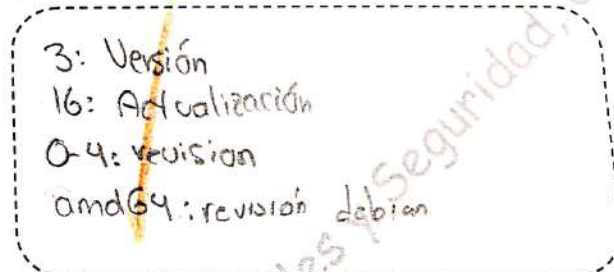 3: Versión
16: Actualización
0-4: revision
amd64: revisión debian
es y Seguridad,